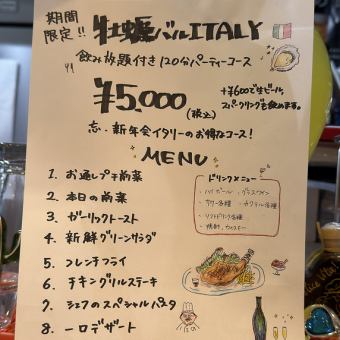 期間
限定!!
牡蠣バルITALY
飲み放題付き120分パーティーコース
¥5,000
(税込)
+¥600で生ビール、
スパークリングも飲めます。
忘・新年会イタリーのお得なコース!
MENU
1. お通しプチ前菜
2. 本日の前菜
3. ガーリックトースト
4. 新鮮グリーンサラダ
5. フレンチフライ
6. チキングリルステーキ
7. シェフのスペシャルパスタ
8. 一口デザート
ドリンクメニュー
・ハイボール ・グラスワイン
・サワー各種 ・カクテル各種
・ソフトドリンク各種
・焼酎、ウイスキー